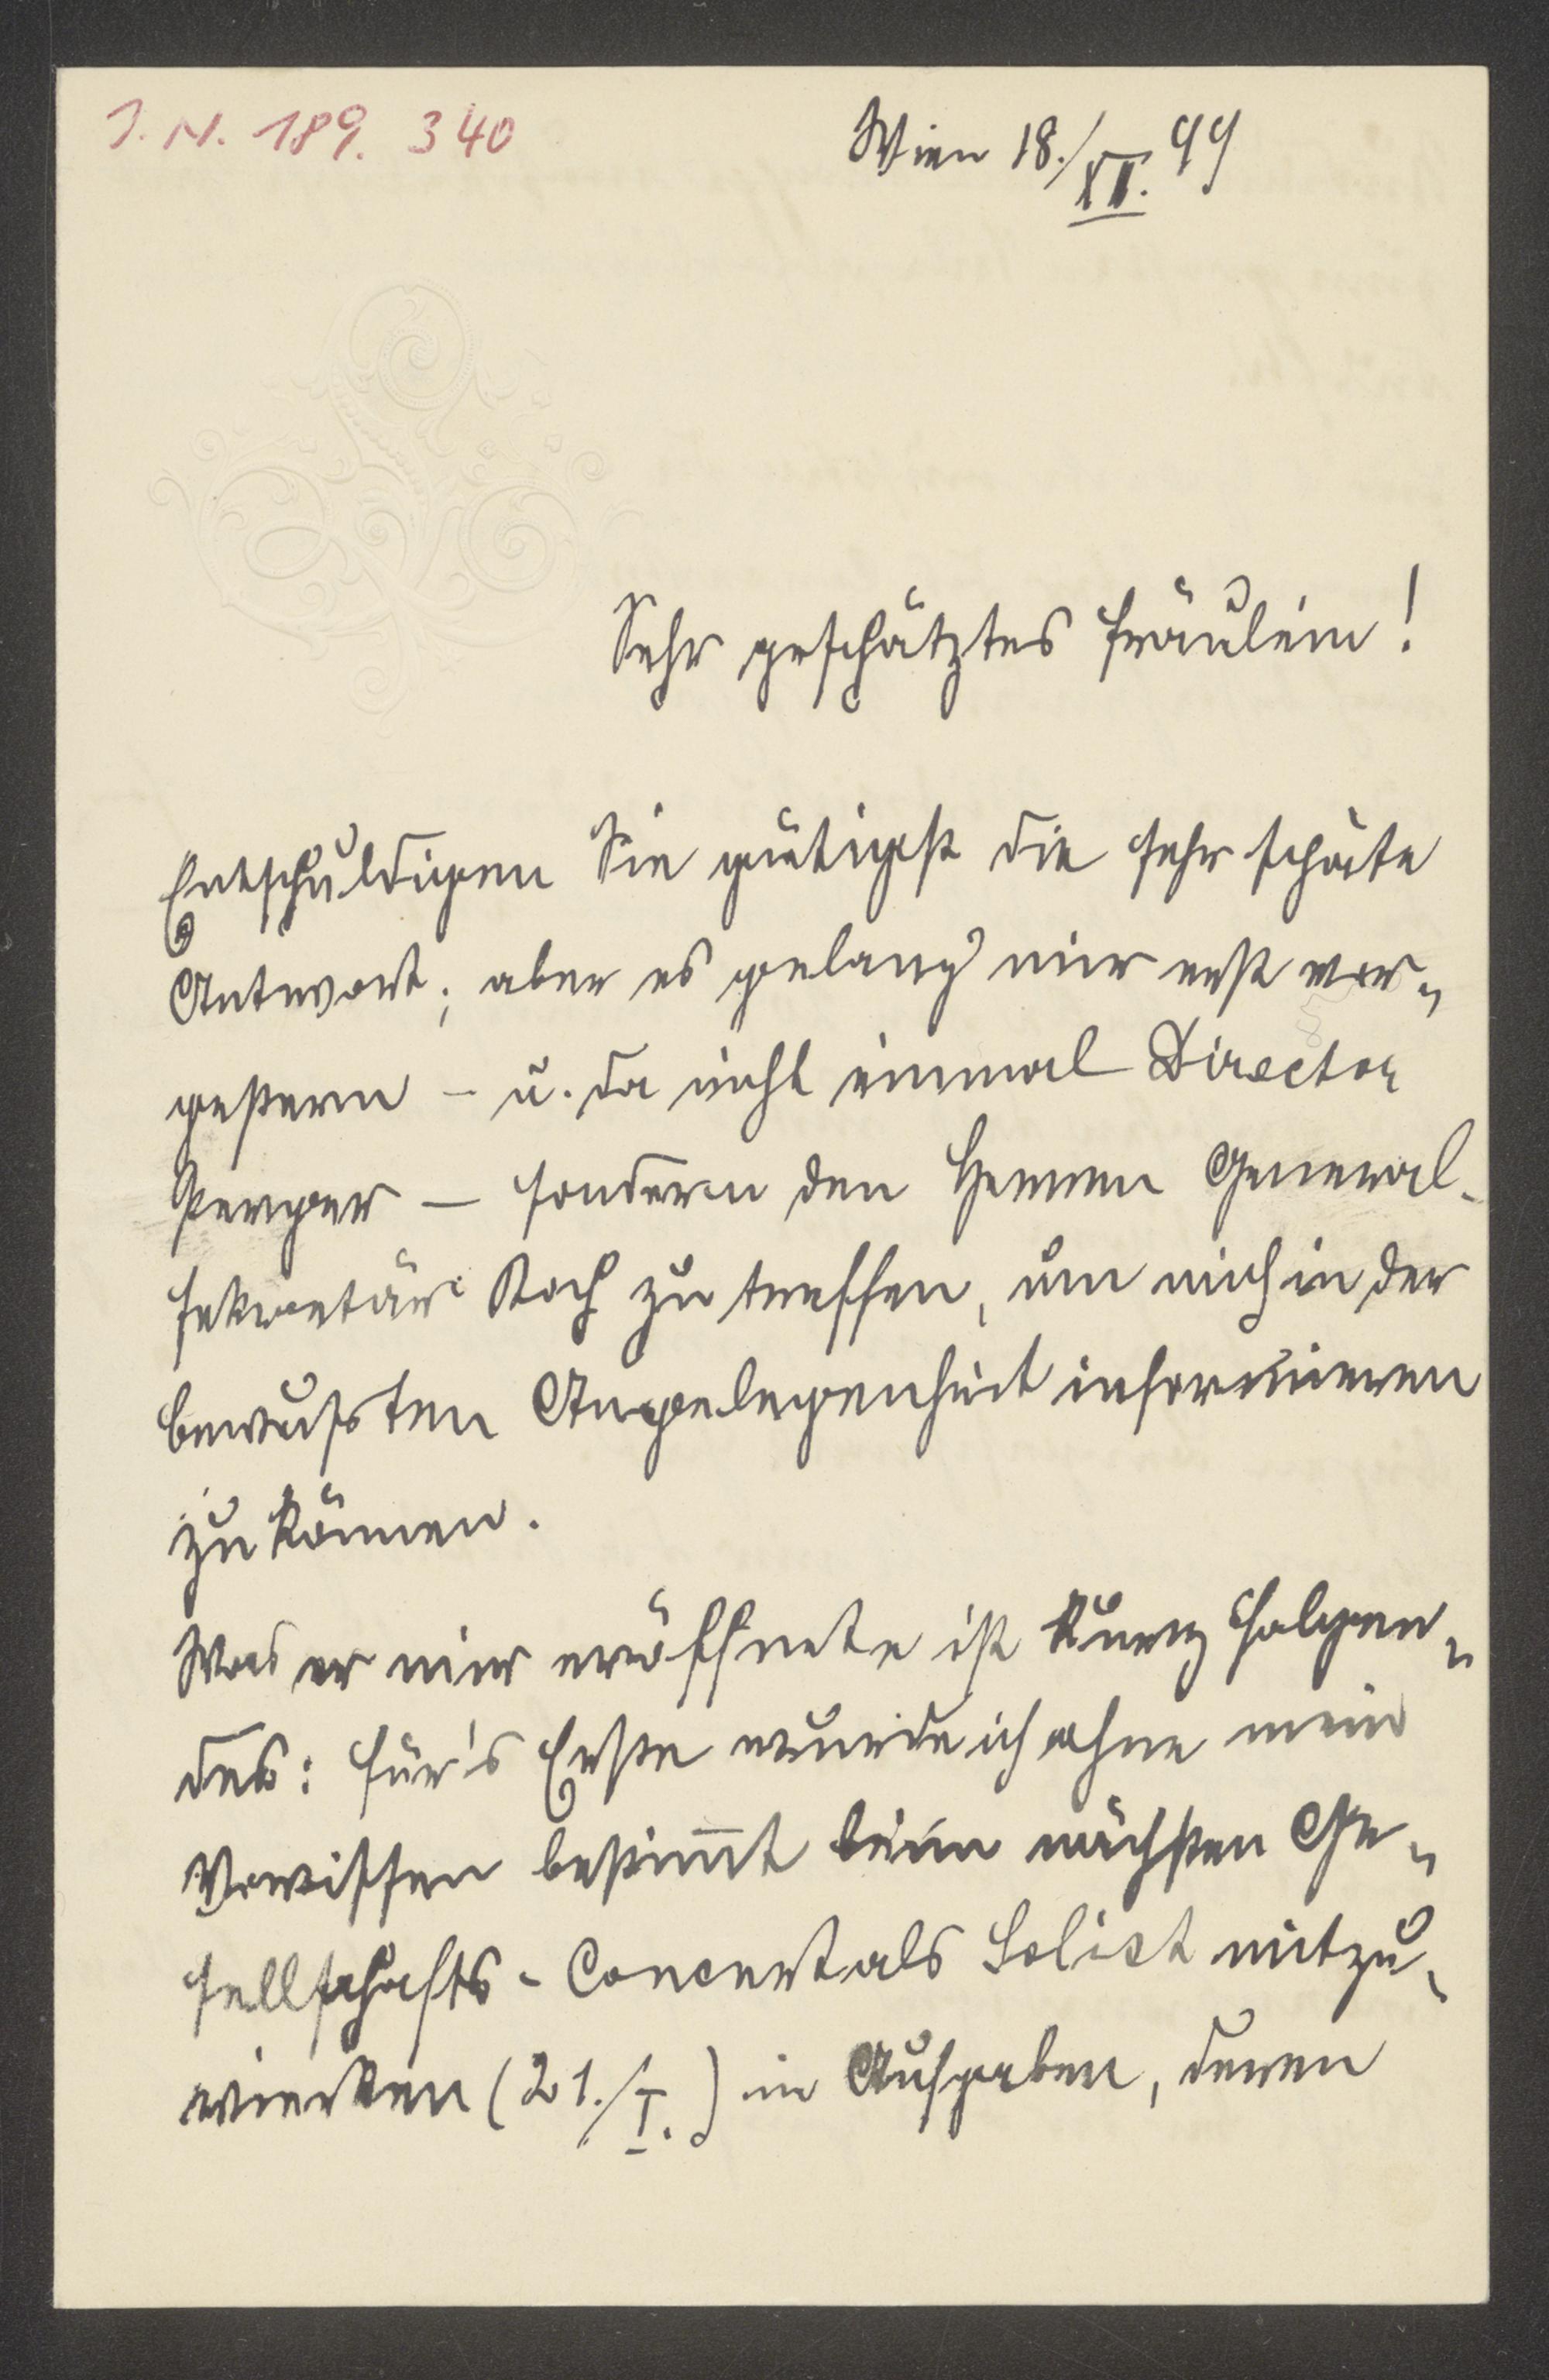 J. N. 189. 340
Wien 18./XI. 99
Sehr geschätztes Fräulein!
Entschuldigen Sie gütigst die sehr späte
Antwort; aber es gelang mir erst vor„
gestern – u. da nicht einmal Director
Perger – sondern den Herren General-
sekretär Koch zu treffen, um mich in der
bewußten Angelegenheit informieren
zu können.
Was er mir eröffnete ist kurz Folgen„
des: für's Erste wurde ich ohne mein
Vorwissen bestim̅t beim nächsten Ge„
sellschafts-Concert als Solist mitzu„
wirken (21./I.) in Aufgaben, deren